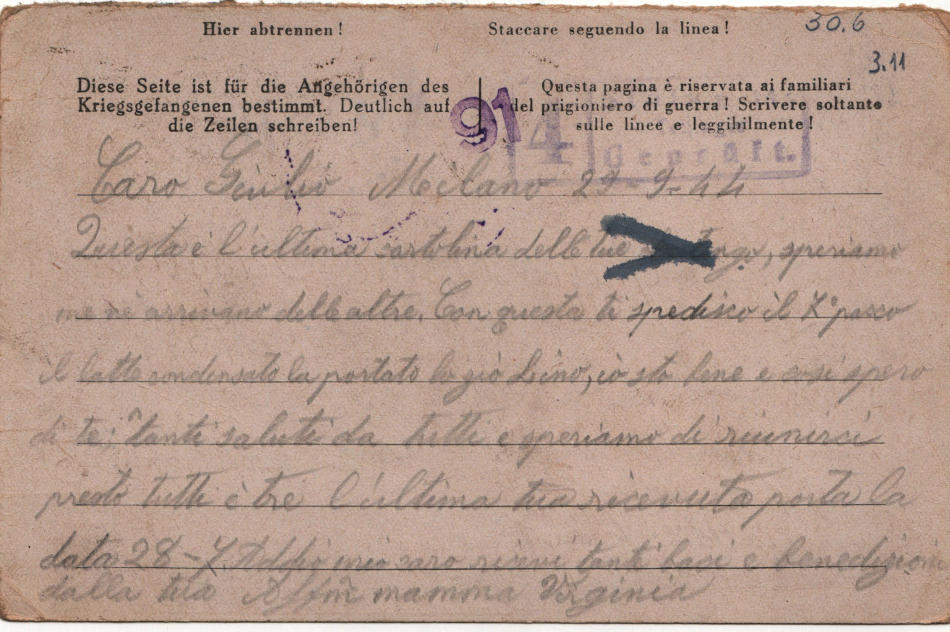 Hier abtrennen!
Staccare seguendo la linea!
30.6
3.11
Diese Seite ist für die Angehörigen des
Kriegsgefangenen bestimmt. Deutlich auf
die Zeilen schreiben!
Questa pagina è riservata ai familiari
del prigioniero di guerra! Scrivere soltanto
sulle linee e leggibilmente!
91
4
Geprüft.
Caro Giulio Milano 29-9-44
Questa è l'ultima cartolina delle tue, speriamo
me ne arrivano delle altre. Con questa ti spedisco il 7° pacco
il latte condensato la portato lo zio Lino, io sto bene e così spero
di te. tanti saluti da tutti e speriamo di riunirci
presto tutti è tre l'ultima tua ricevuta porta la
data 28-7. Addio mio caro ricevi tanti baci e benedizioni
dalla tua Aff.ma mamma Virginia